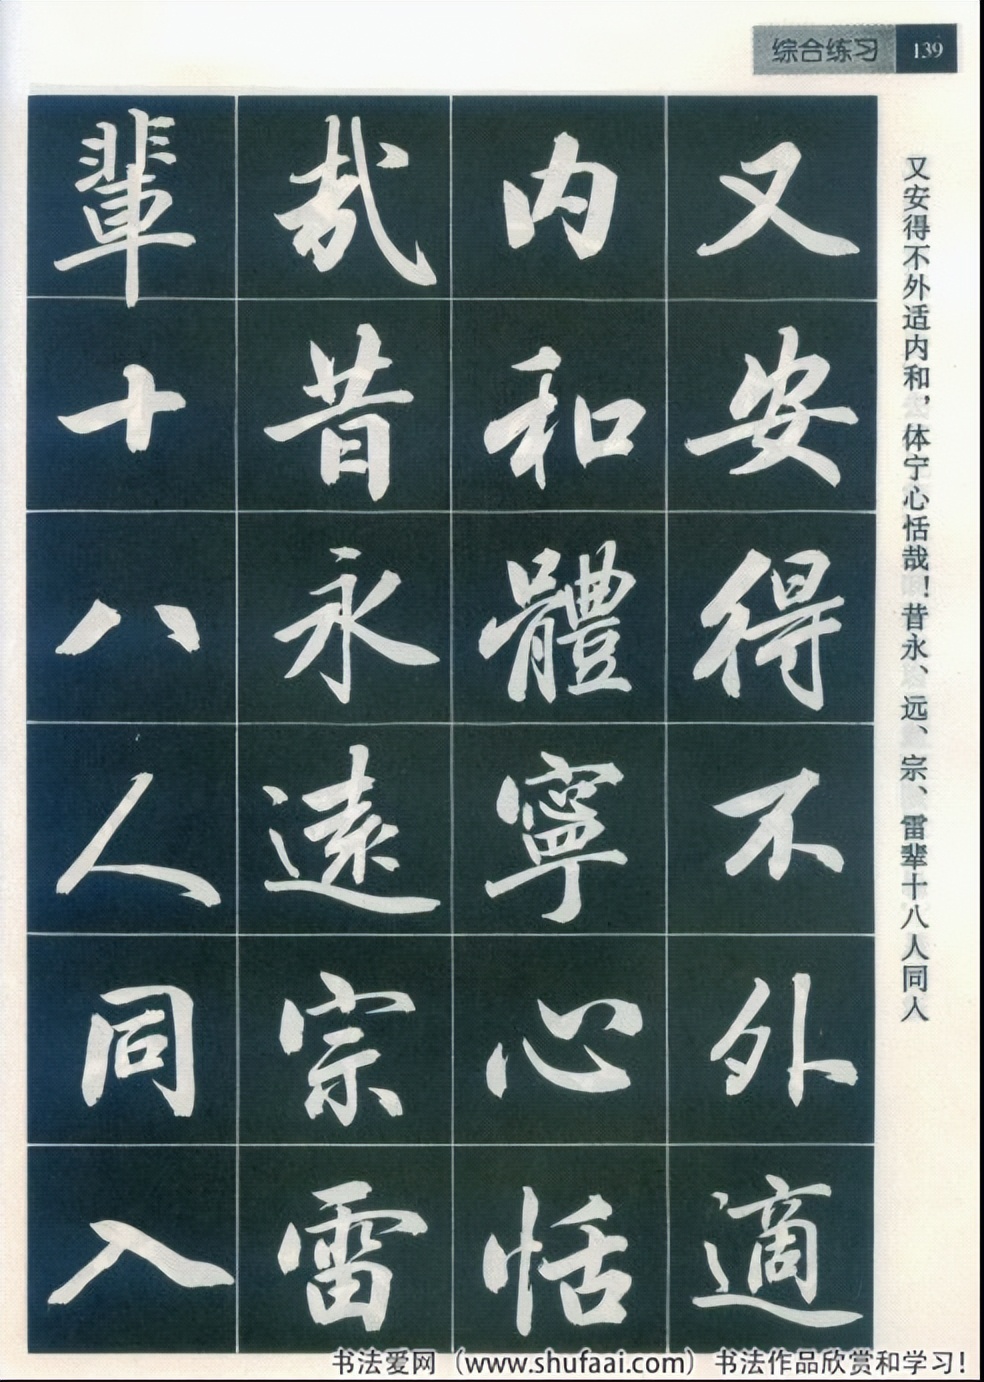 综合练习 139
又安得不外适内和，体宁心恬哉！昔永、远、宗、雷辈十八人同人
又安得不外適
内和體寧心恬
哉昔永遠宗雷
輩十八人同入
书法爱网（www.shufaai.com）书法作品欣赏和学习！